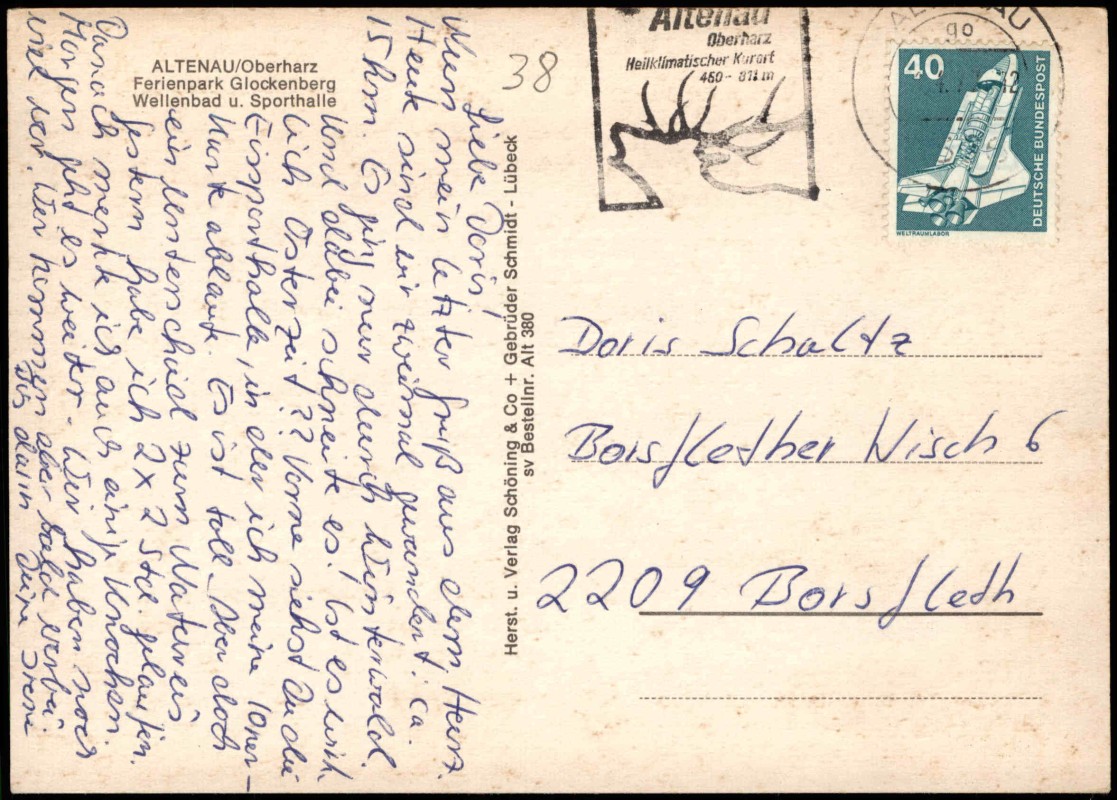 ALTENAU/Oberharz
Ferienpark Glockenberg
Wellenbad u. Sporthalle
38
Altenau
Oberharz
Heilklimatischer Kurort
450 - 811 m
ALTENAU
40
DEUTSCHE BUNDESPOST
WELTRAUMLABOR
Liebe Doris!
Nun mein letzter Gruß aus dem Harz.
Heute sind wir zweimal gewandert: ca.
15 km. Es ging nur durch Winterwald.
Und dabei schneite es! Ist es wirk
lich Osterzeit?? Vorne siehst Du die
Eissporthalle, in der ich meine 10ner-
Karte ablaufe. Es ist toll. Aber doch
ein Unterschied zum Natureis
Gestern habe ich 2x2 Std. gelaufen.
Danach merkte ich auch einige Knochen.
Morgen geht es weiter - Wir haben noch
viel vor. Wir kommen aber bald vorbei
Bis dann Deine Irene
Herst. u. Verlag Schöning & Co + Gebrüder Schmidt - Lübeck
sv Bestellnr. Alt 380
Doris Schaltz
Borsflether Wisch 6
2209 Borsfleth